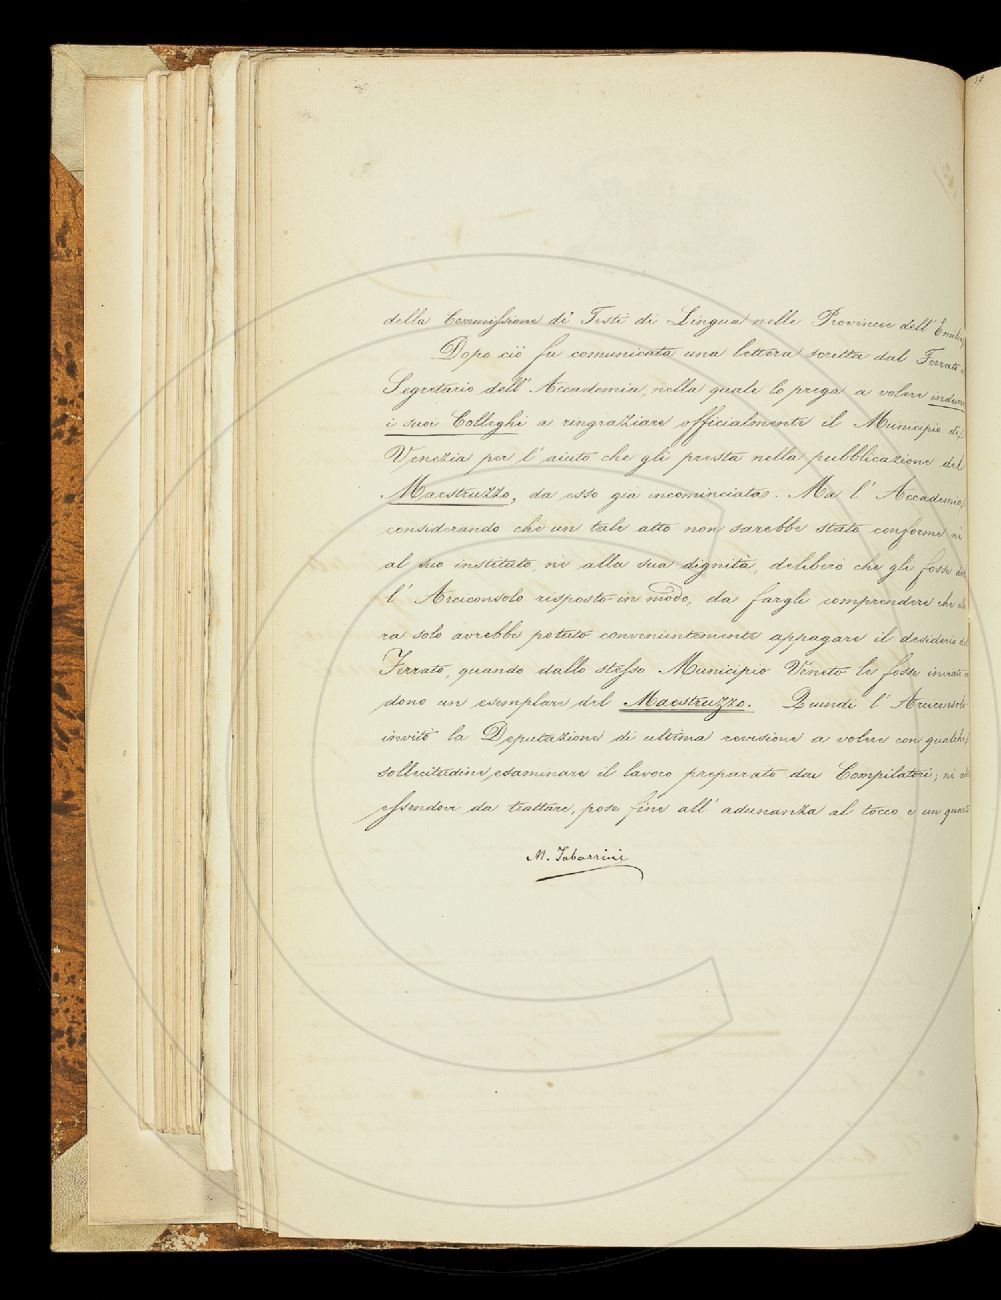 della Commissione di Testi di Lingua nelle Provincie dell' Emilia.
Dopo ciò fu comunicata una lettera scritta dal Ferrato al
Segretario dell' Accademia, nella quale lo prega a volere indurre
i suoi Colleghi a ringraziare officialmente il Municipio di
Venezia per l' aiuto che gli presta nella pubblicazione del
Maestruzzo, da esso già incominciata. Ma l' Accademia,
considerando che un tale atto non sarebbe stato conforme nè
al suo instituto, nè alla sua dignità, deliberò che gli fosse dal
l' Arciconsolo risposto in modo, da fargli comprendere che allo
ra solo avrebbe potuto convenientemente appagare il desiderio del
Ferrato, quando dallo stesso Municipio Veneto le fosse inviato in
dono un esemplare del Maestruzzo. Quindi l' Arciconsolo
invitò la Deputazione di ultima revisione a volere con qualche
sollecitudine esaminare il lavoro preparato dai Compilatori; nè altro
essendovi da trattare, pose fine all' adunanza al tocco e un quarto.
M. Tabarrini